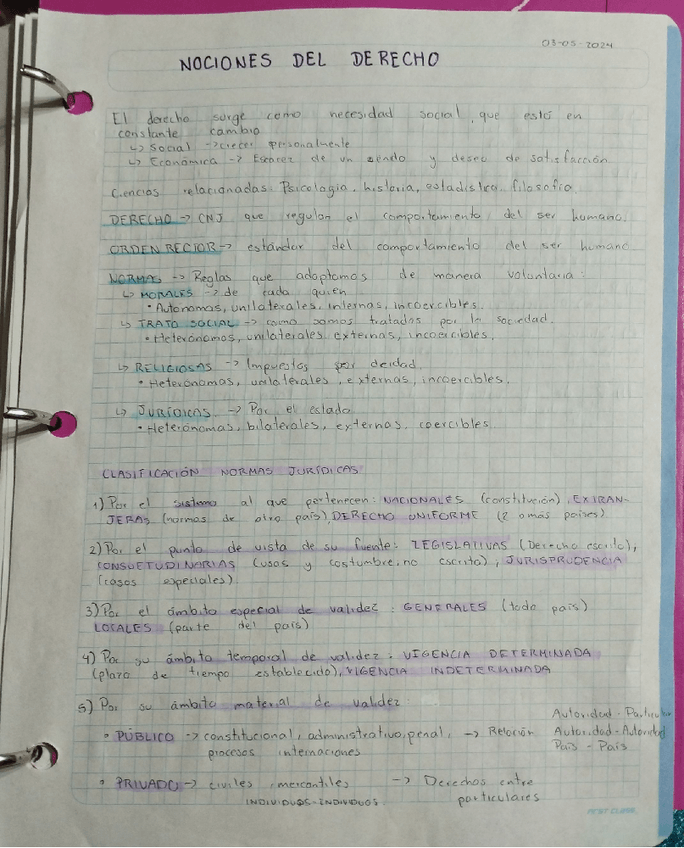 03-05-2024
NOCIONES DEL DERECHO
El derecho surge como necesidad social, que está en
constante cambio
↳ Social → crecer personalmente
↳ Económica → Escarez de un and deseo de satisfacción
Ciencias relacionadas: Psicología, historia, estadistica, filosofía
DERECHO → CNJ que regulan el comportamiento del ser humano.
ORDEN RECTOR → estándar del comportamiento del ser humano
NORMAS → Reglas que adoptamos de manera voluntaria:
↳ MORALES → de cada quien
• Autónomas, unilaterales, internas, incoercibles.
↳ TRATO SOCIAL → como somos tratados por la sociedad.
• Heterónomas, unilaterales, externas, incoercibles.
↳ RELIGIOSAS → Impuestas por deidad.
• Heterónomas, unilaterales, externas, incoercibles.
↳ JURÍDICAS → Por el estado
• Heterónomas, bilaterales, externas, coercibles
CLASIFICACIÓN NORMAS JURÍDICAS
1) Por el sistema al que pertenecen: NACIONALES (constitución), EXTRAN-
JERAS (normas de otro país), DERECHO UNIFORME (2 o más países)
2) Por el punto de vista de su fuente: LEGISLATIVAS (Derecho escrito),
CONSUETUDINARIAS (usos y costumbre, no escrito), JURISPRUDENCIA
(casos especiales)
3) Por el ámbito especial de validez: GENERALES (todo país)
LOCALES (parte del país)
4) Por su ámbito temporal de validez: VIGENCIA DETERMINADA
(plazo de tiempo establecido), VIGENCIA INDETERMINADA
5) Por su ámbito material de validez:
• PÚBLICO → constitucional, administrativo, penal, → Relación
procesos internaciones
Autoridad - Particular
Autoridad - Autoridad
País - País
• PRIVADO → civiles, mercantiles → Derechos entre
INDIVIDUOS - INDIVIDUOS particulares
FIRST CLASS